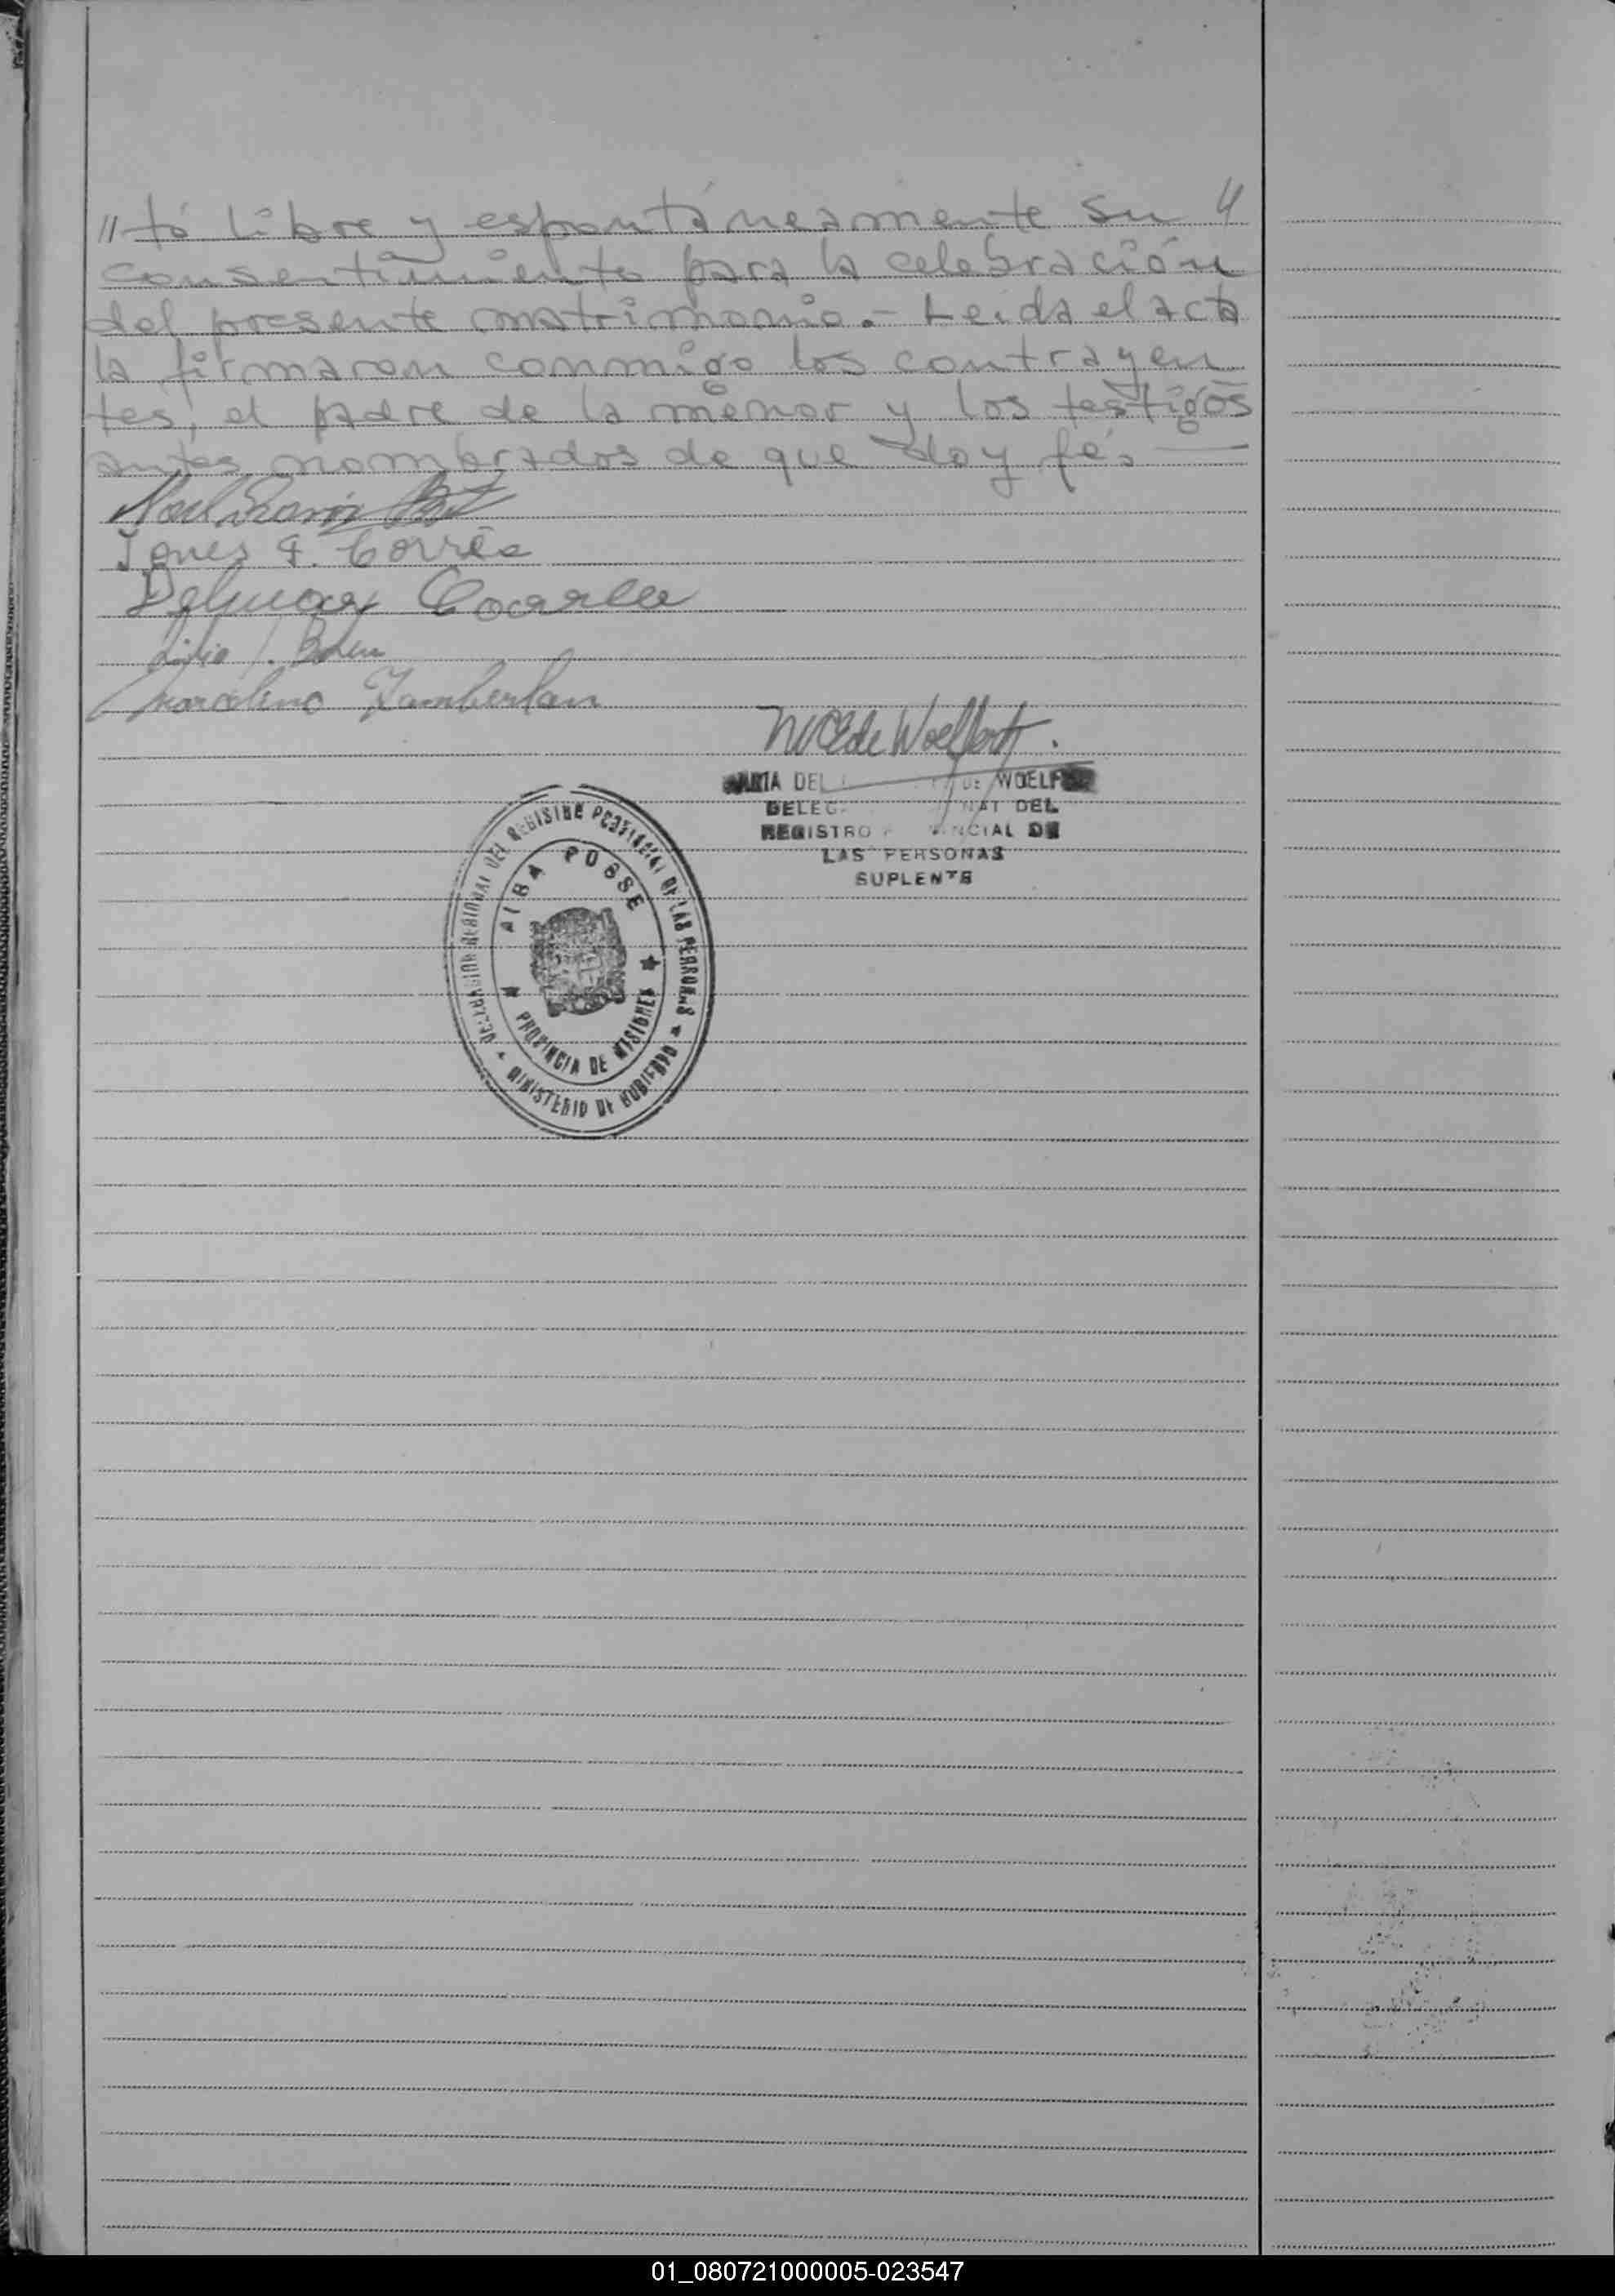 "tó libre y espontáneamente su
consentimiento para la celebración
del presente matrimonio.- Leida el acta
la firmaron conmigo los contrayen
tes, el padre de la menor y los testigos
antes nombrados de que doy fé.
Correa
Marcelino Zamberlan
de Woelfert
MARIA DEL DE WOELF
DELEG NAT DEL
REGISTRO P VINCIAL DE
LAS PERSONAS
SUPLENTE
REGIONAL DEL DE LAS PERSONAS
ALBA POSSE
PROVINCIA DE MISIONES
MINISTERIO DE GOBIERNO
01_080721000005-023547